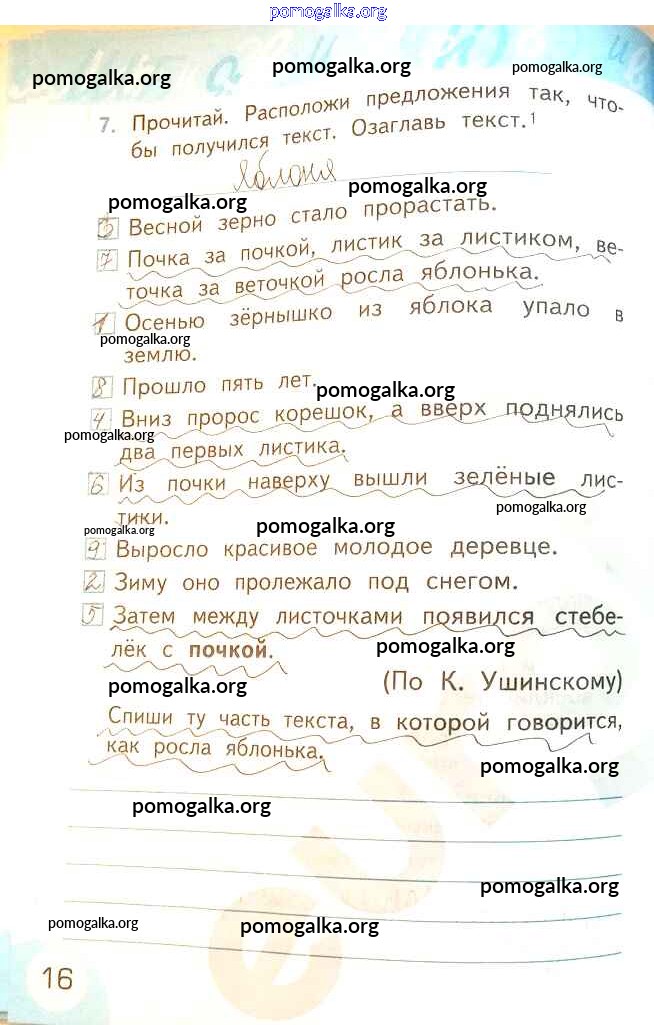 pomogalka.org
pomogalka.org
pomogalka.org
pomogalka.org
7. Прочитай. Расположи предложения так, что-
бы получился текст. Озаглавь текст.1
Яблоня
pomogalka.org
pomogalka.org
3 Весной зерно стало прорастать.
7 Почка за почкой, листик за листиком, ве-
точка за веточкой росла яблонька.
1 Осенью зёрнышко из яблока упало в
pomogalka.org
землю.
8 Прошло пять лет.
pomogalka.org
4 Вниз пророс корешок, а вверх поднялись
pomogalka.org
два первых листика.
6 Из почки наверху вышли зелёные лис-
pomogalka.org
тики.
pomogalka.org
pomogalka.org
9 Выросло красивое молодое деревце.
2 Зиму оно пролежало под снегом.
5 Затем между листочками появился стебе-
лёк с почкой.
pomogalka.org
(По К. Ушинскому)
pomogalka.org
Спиши ту часть текста, в которой говорится,
как росла яблонька.
pomogalka.org
pomogalka.org
pomogalka.org
pomogalka.org
pomogalka.org
16